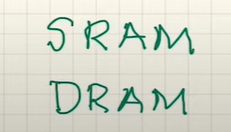 SRAM
DRAM